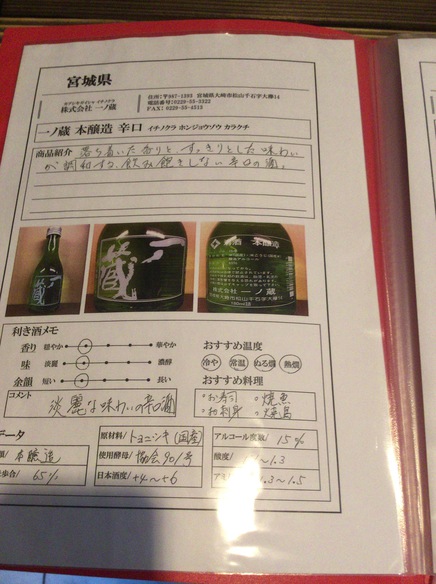 宮城県
カブシキガイシャ イチノクラ
株式会社 一ノ蔵
住所：〒987-1393 宮城県大崎市松山千石字大欅14
電話番号：0229-55-3322
FAX：0229-55-4513
一ノ蔵 本醸造 辛口 イチノクラ ホンジョウゾウ カラクチ
商品紹介 落ち着いた香りと、すっきりとした味わい
が調和する、飲み飽きしない辛口の酒。
一ノ蔵
清酒 本醸造
株式会社 一ノ蔵
利き酒メモ
香り 穏やか 華やか
味 淡麗 濃醇
余韻 短い 長い
コメント
淡麗な味わいの辛口酒
おすすめ温度
冷や 常温 ぬる燗 熱燗
おすすめ料理
・お寿司 ・焼魚
・お刺身 ・焼鳥
データ
本醸造
歩合 65%
原材料 トヨニシキ(国産)
使用酵母 協会901号
日本酒度 +4〜+6
アルコール度数 15%
酸度 〜1.3
1.3〜1.5